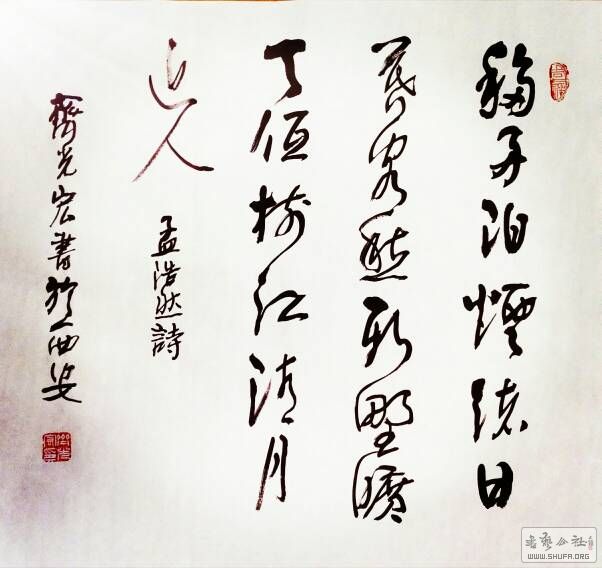 移舟泊煙渚日
暮客愁新野曠
天低樹江清月
近人
孟浩然詩
齊光宏書於西安
书艺公社
WWW.SHUFA.ORG